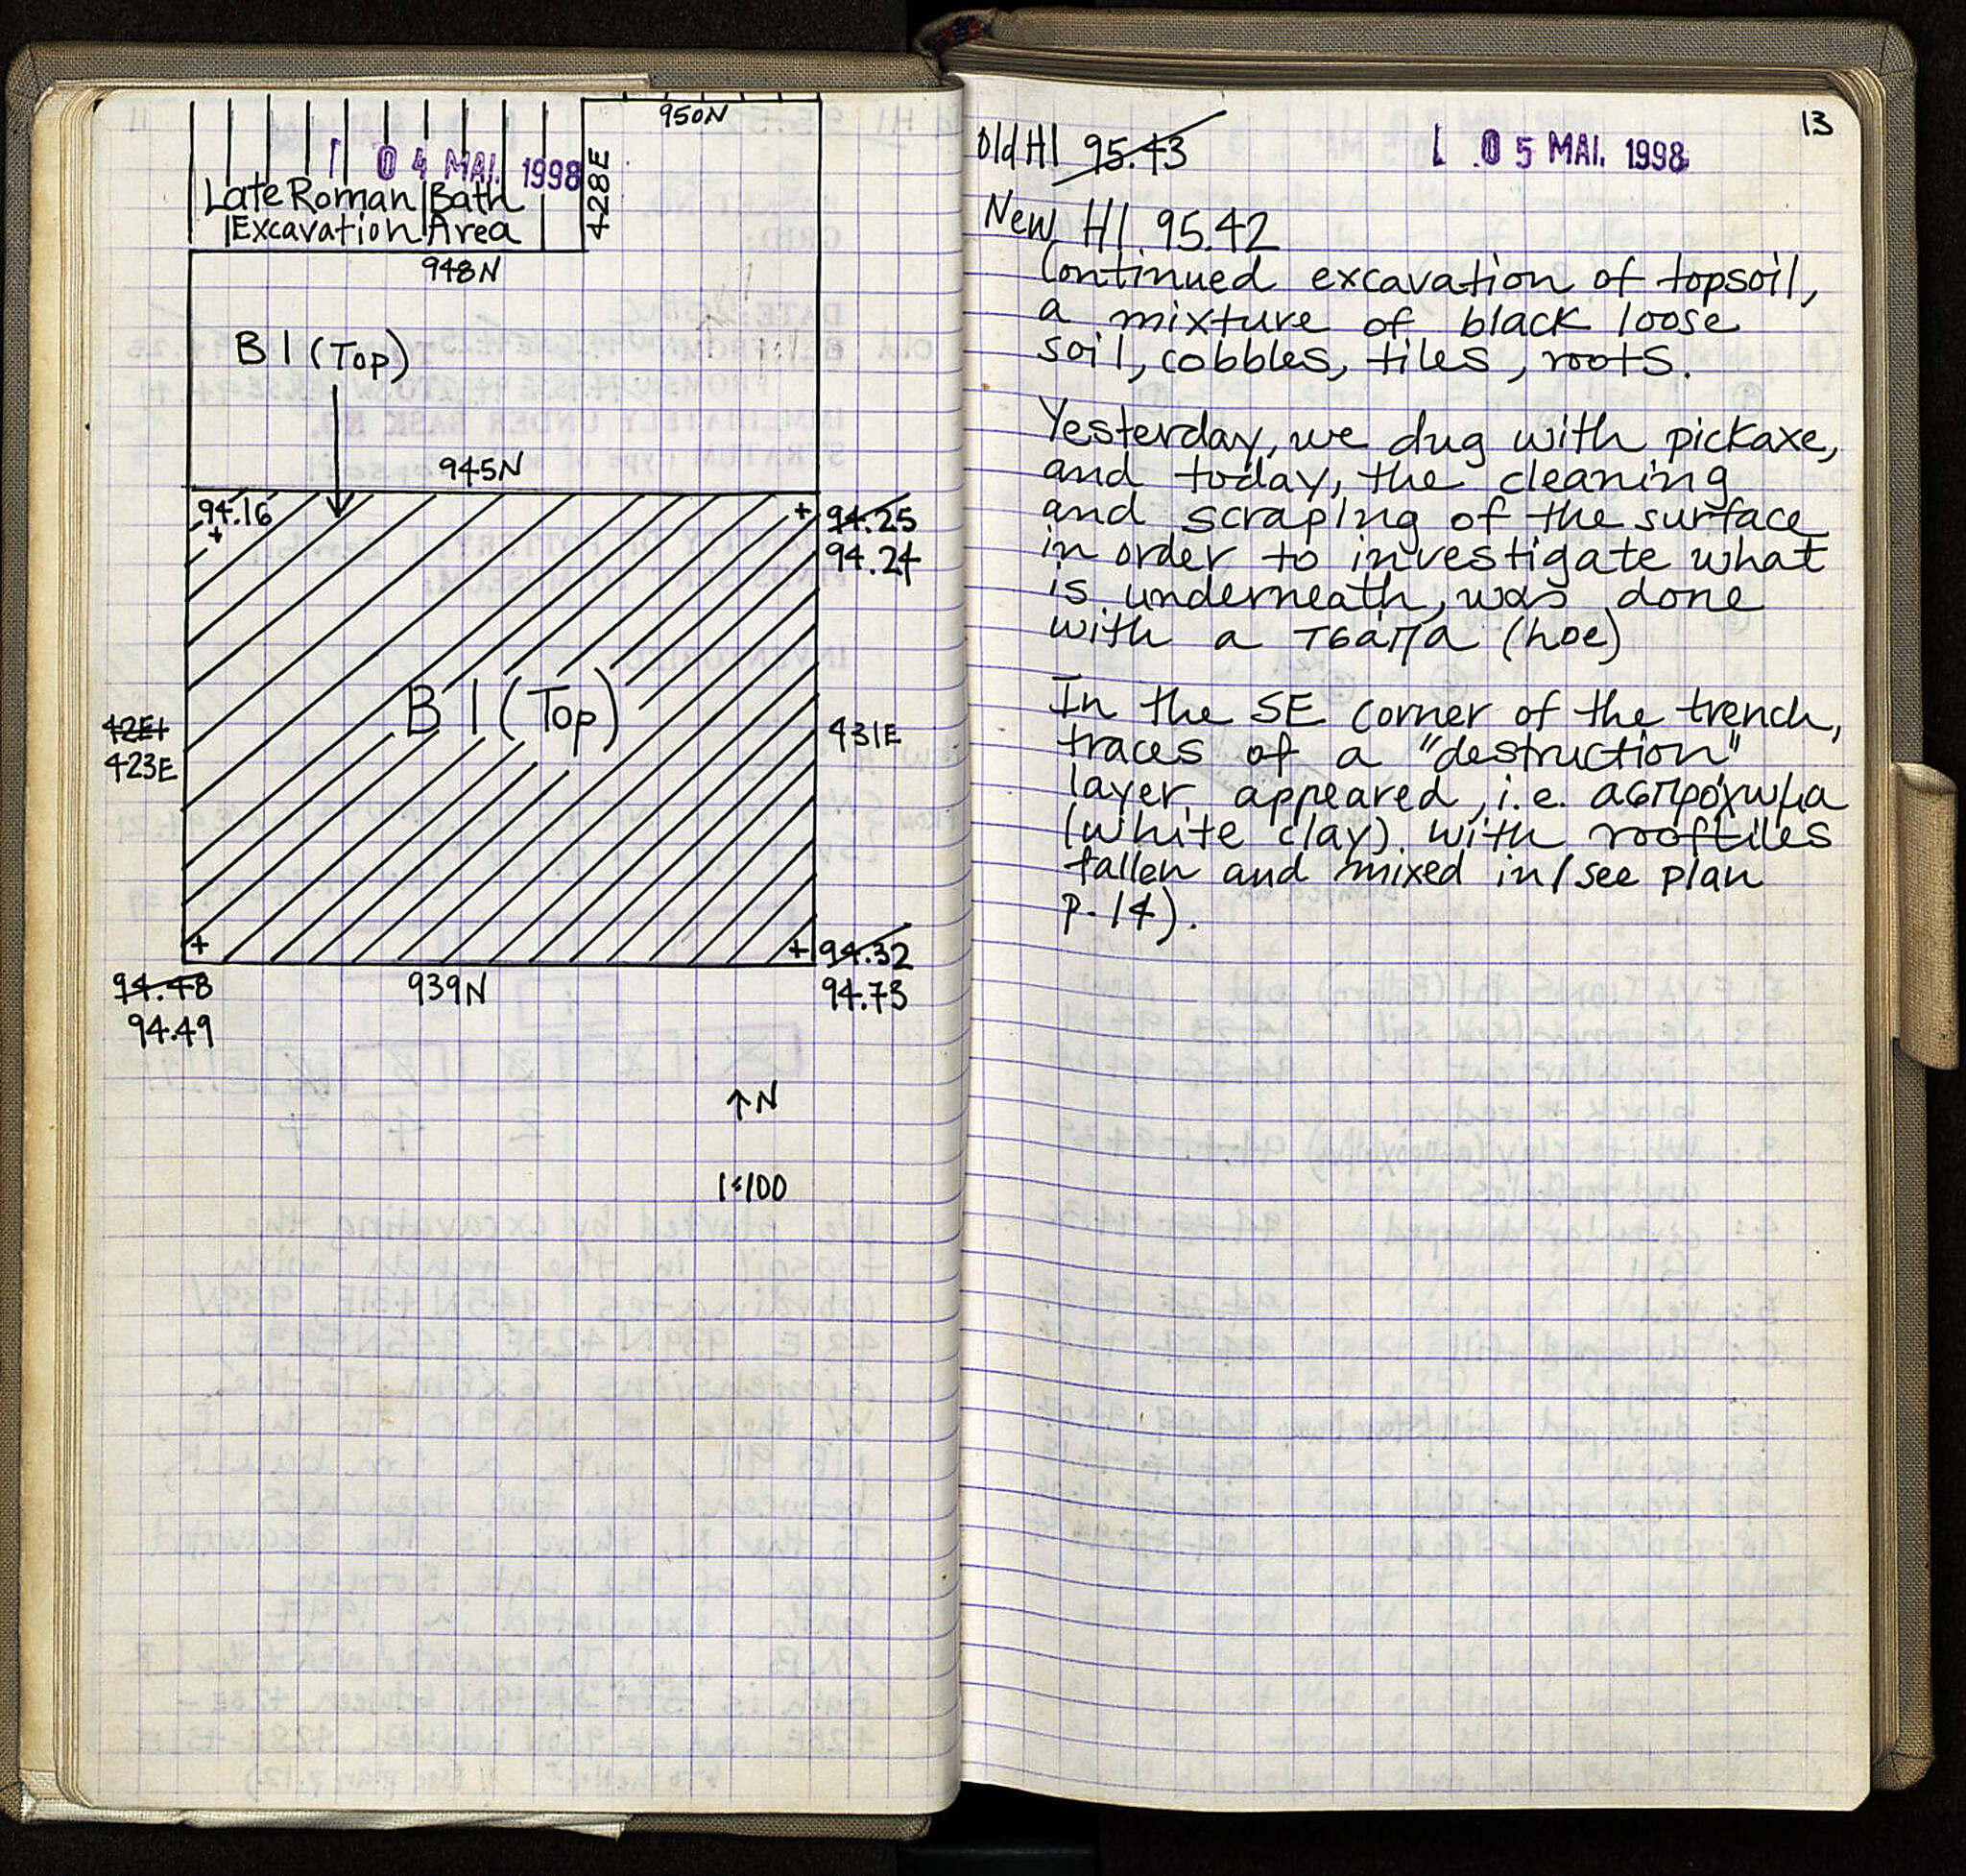 950N
0 4 MAI. 1998
428E
Late Roman Bath
Excavation Area
948N
B1 (Top)
945N
94.16
94.25
94.24
B1 (Top)
42E1
423E
431E
94.32
94.73
94.48
94.49
939N
↑N
1:100
13
Old HI 95.43
0 5 MAI. 1998
New HI 95.42
Continued excavation of topsoil,
a mixture of black loose
soil, cobbles, tiles, roots.
Yesterday, we dug with pickaxe,
and today, the cleaning
and scraping of the surface
in order to investigate what
is underneath, was done
with a τσάπα (hoe)
In the SE corner of the trench,
traces of a "destruction"
layer appeared, i.e. ασπρόχωμα
(white clay) with rooftiles
fallen and mixed in (see plan
p. 14).